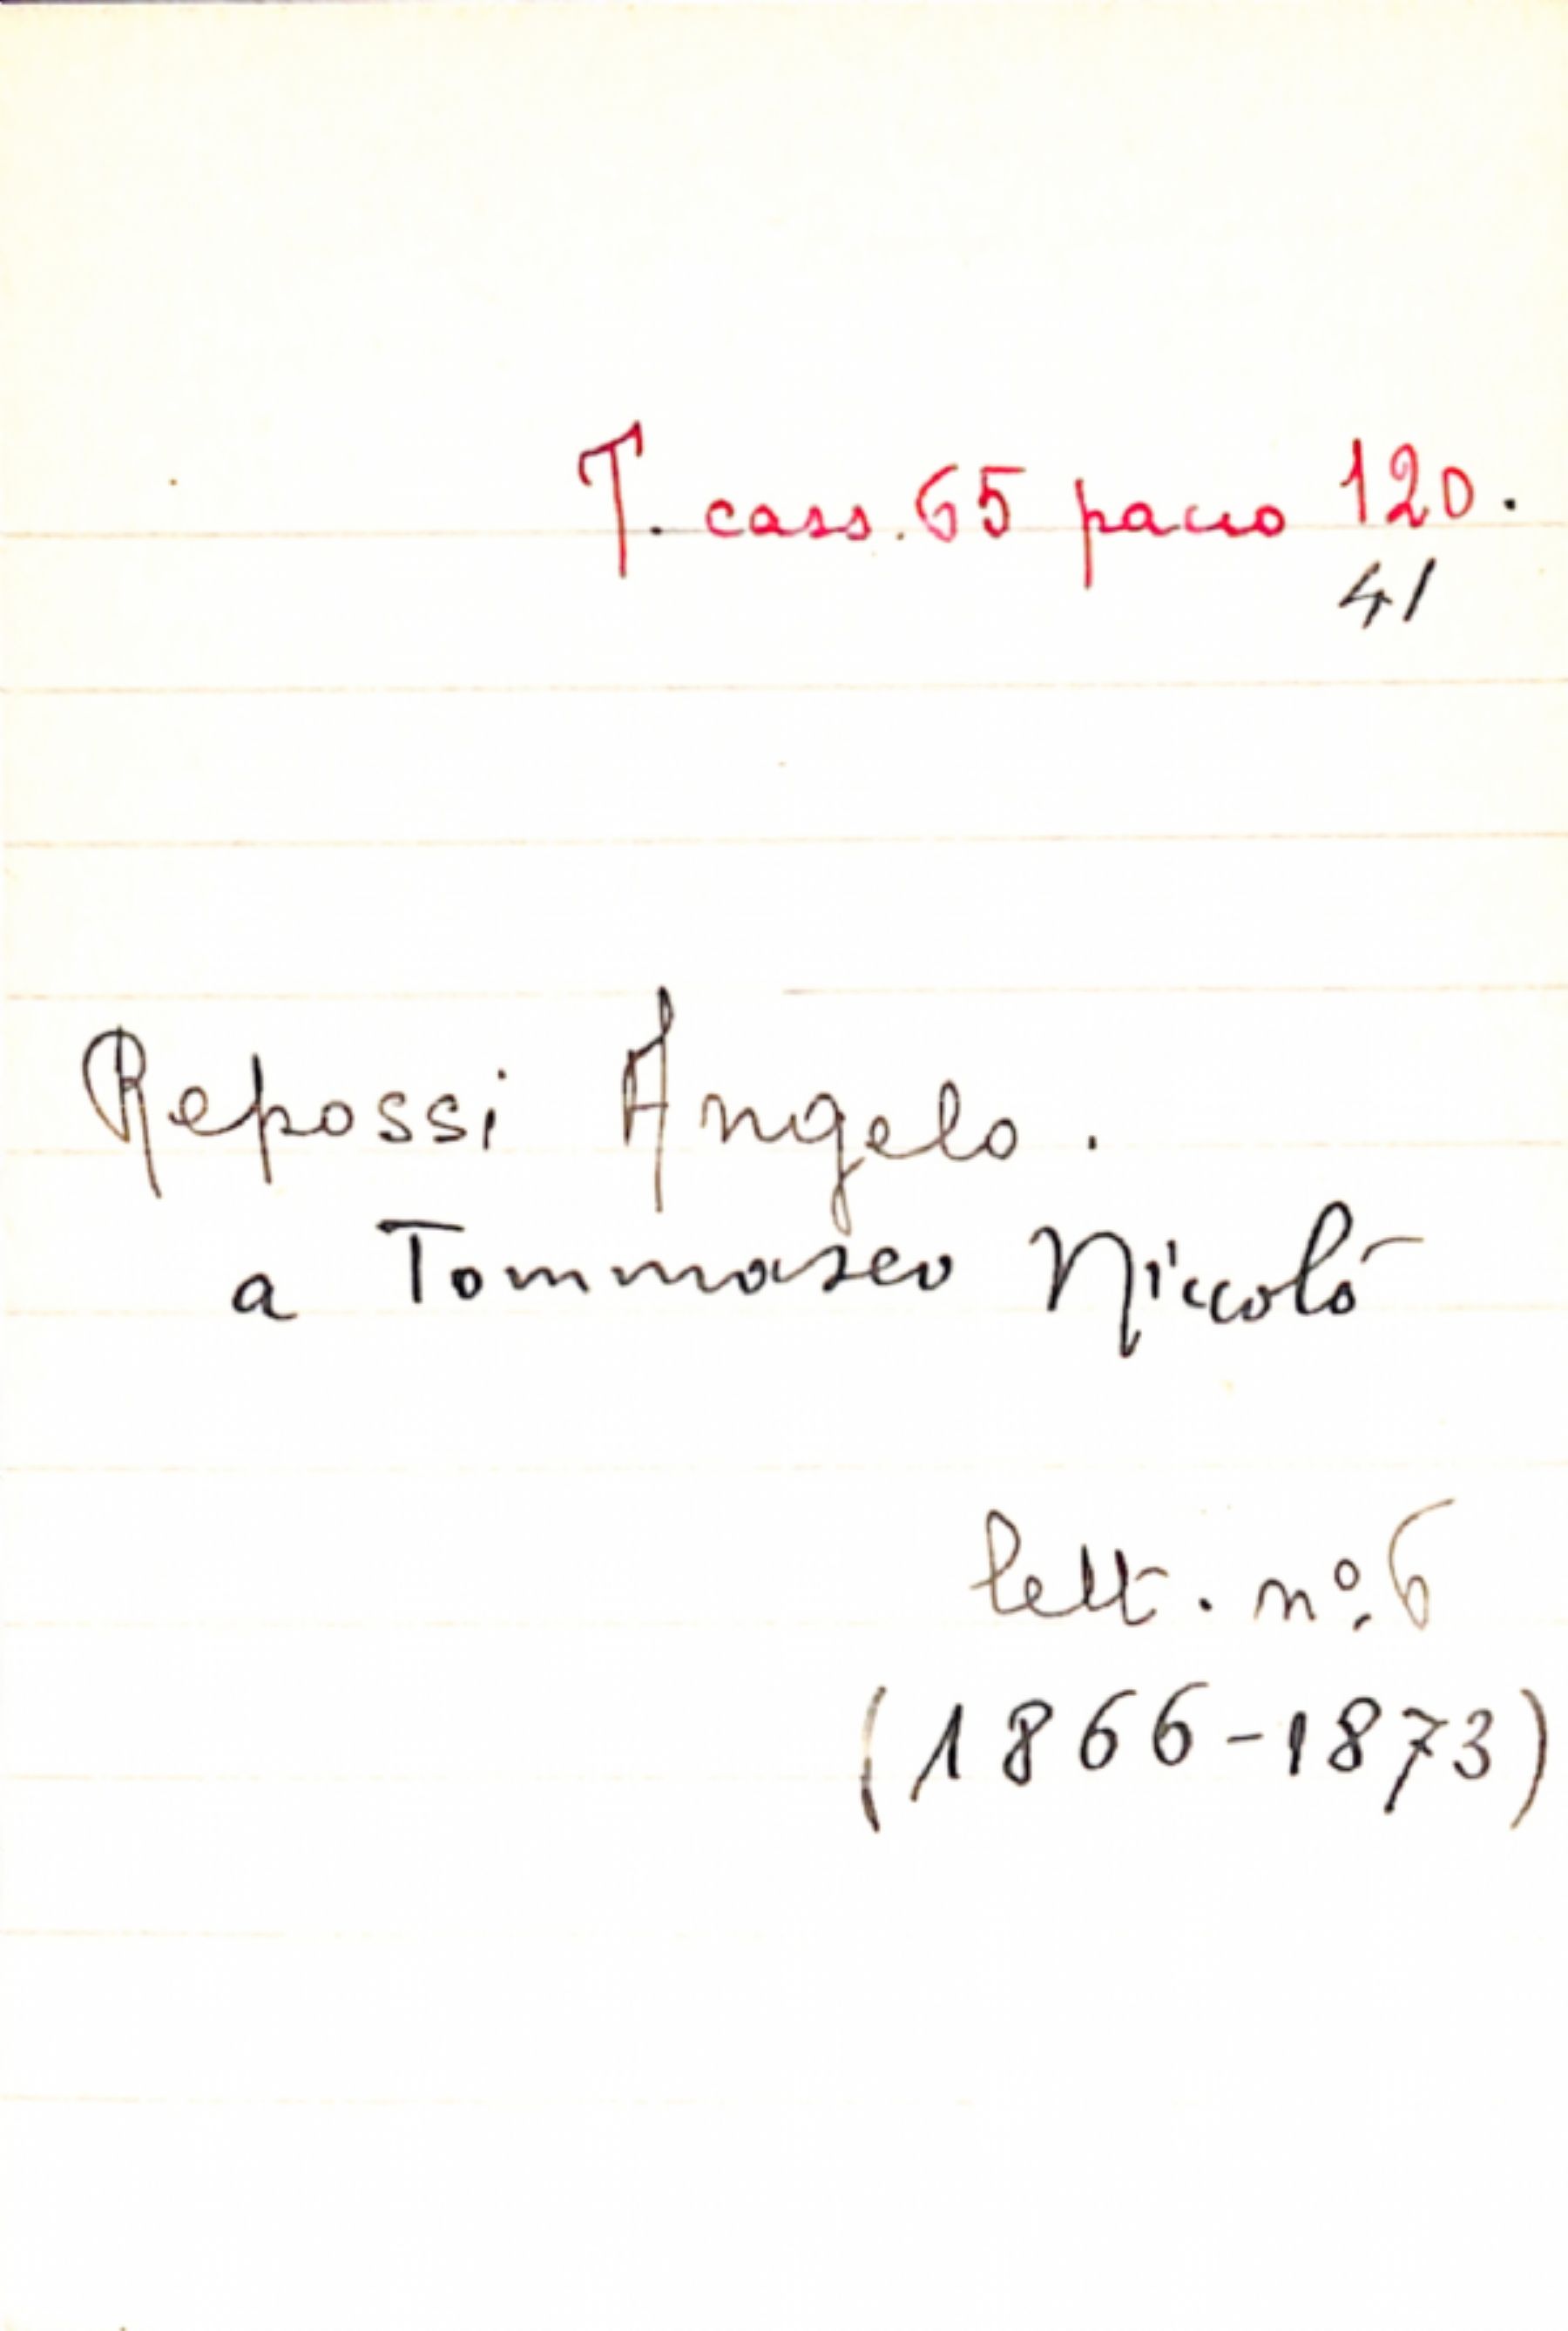 T. cass. 65 pacco 120.
41
Repossi Angelo.
a Tommaseo Niccolò
lett. nº 6
(1866-1873)